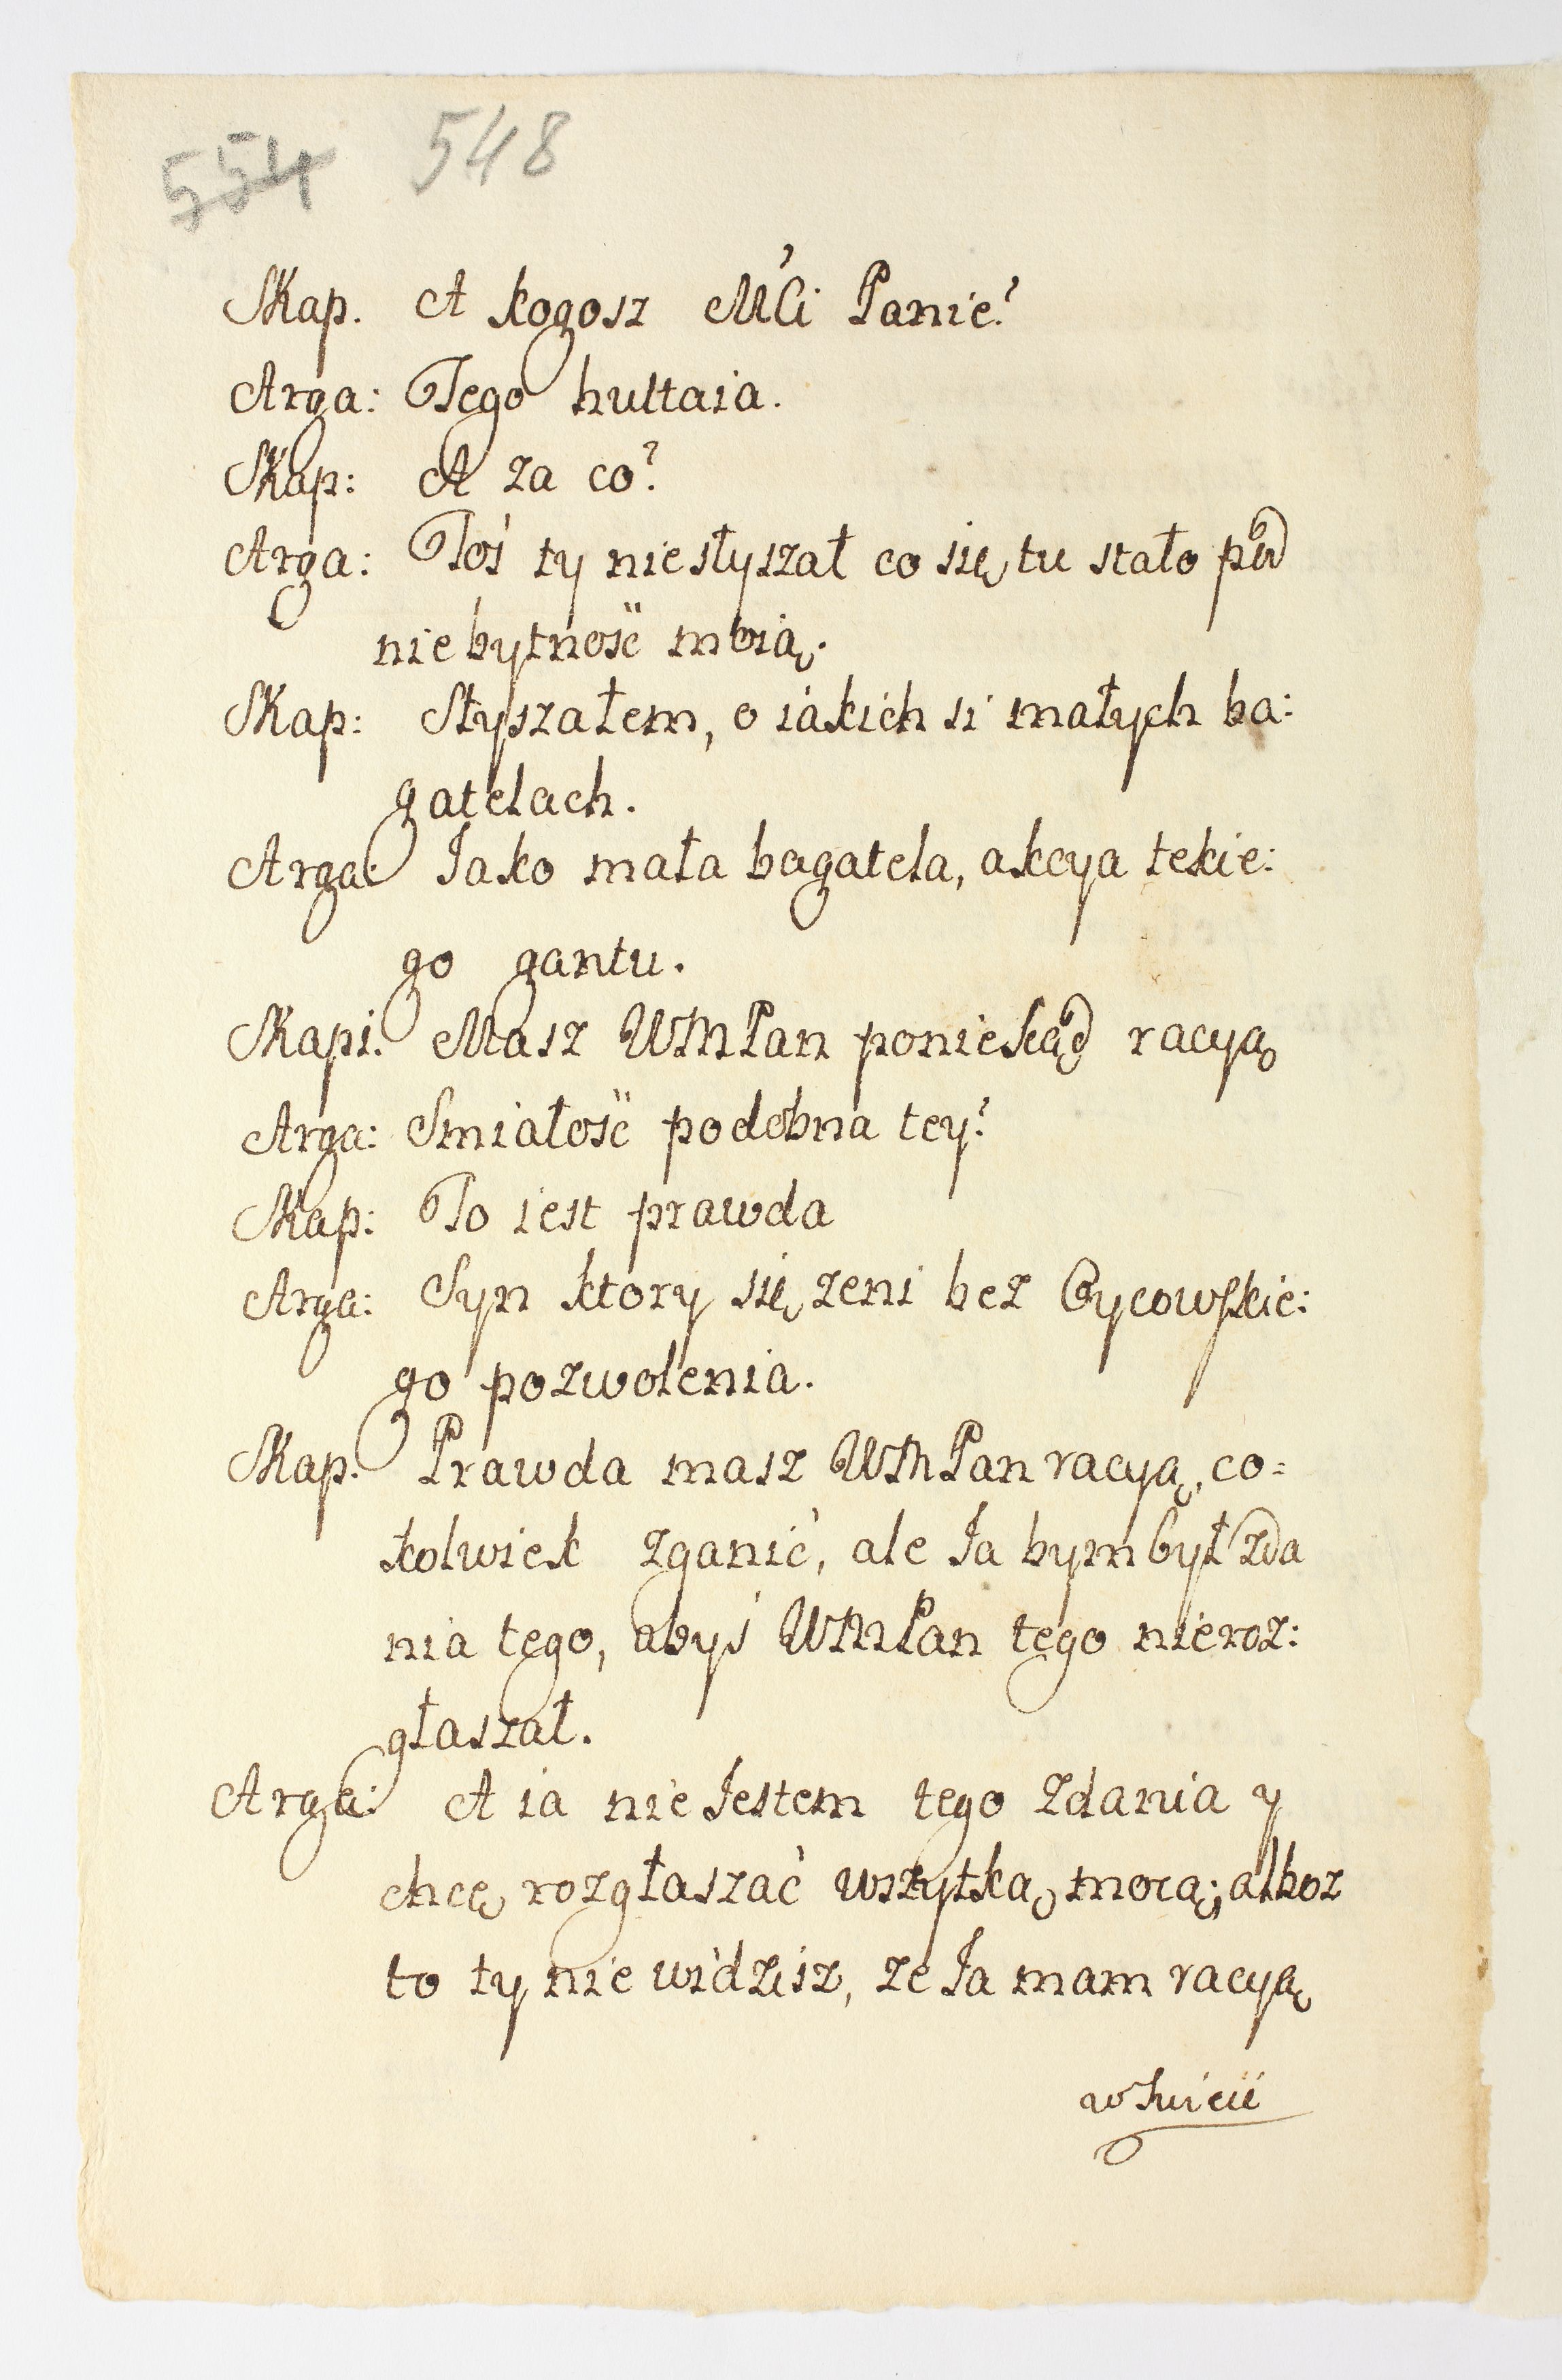 554 548
Skap. A kogosz Mći Panie?
Arga: Tego hultaia.
Skap: A za co?
Arga: Toś ty niesłyszał co się tu stało pod
niebytność moią.
Skap: Słyszałem, o iakich si małych ba:
gatelach.
Arga: Jako mała bagatela, akcya tekie:
go gantu.
Skapi. Masz WMPan poniekąd racyą
Arga: Smiałość podobna tey?
Skap: To iest prawda
Arga: Syn ktory się zeni bez Oycowskie:
go pozwolenia.
Skap. Prawda masz WMPan racyą, co=
kolwiek zganić, ale Ja bym był zda
nia tego, abyś WMPan tego nieroz:
głaszał.
Arga: A ia nie Jestem tego zdania y
chcę rozgłaszać wszytką mocą; alboz
to ty nie widzisz, ze Ja mam racyą